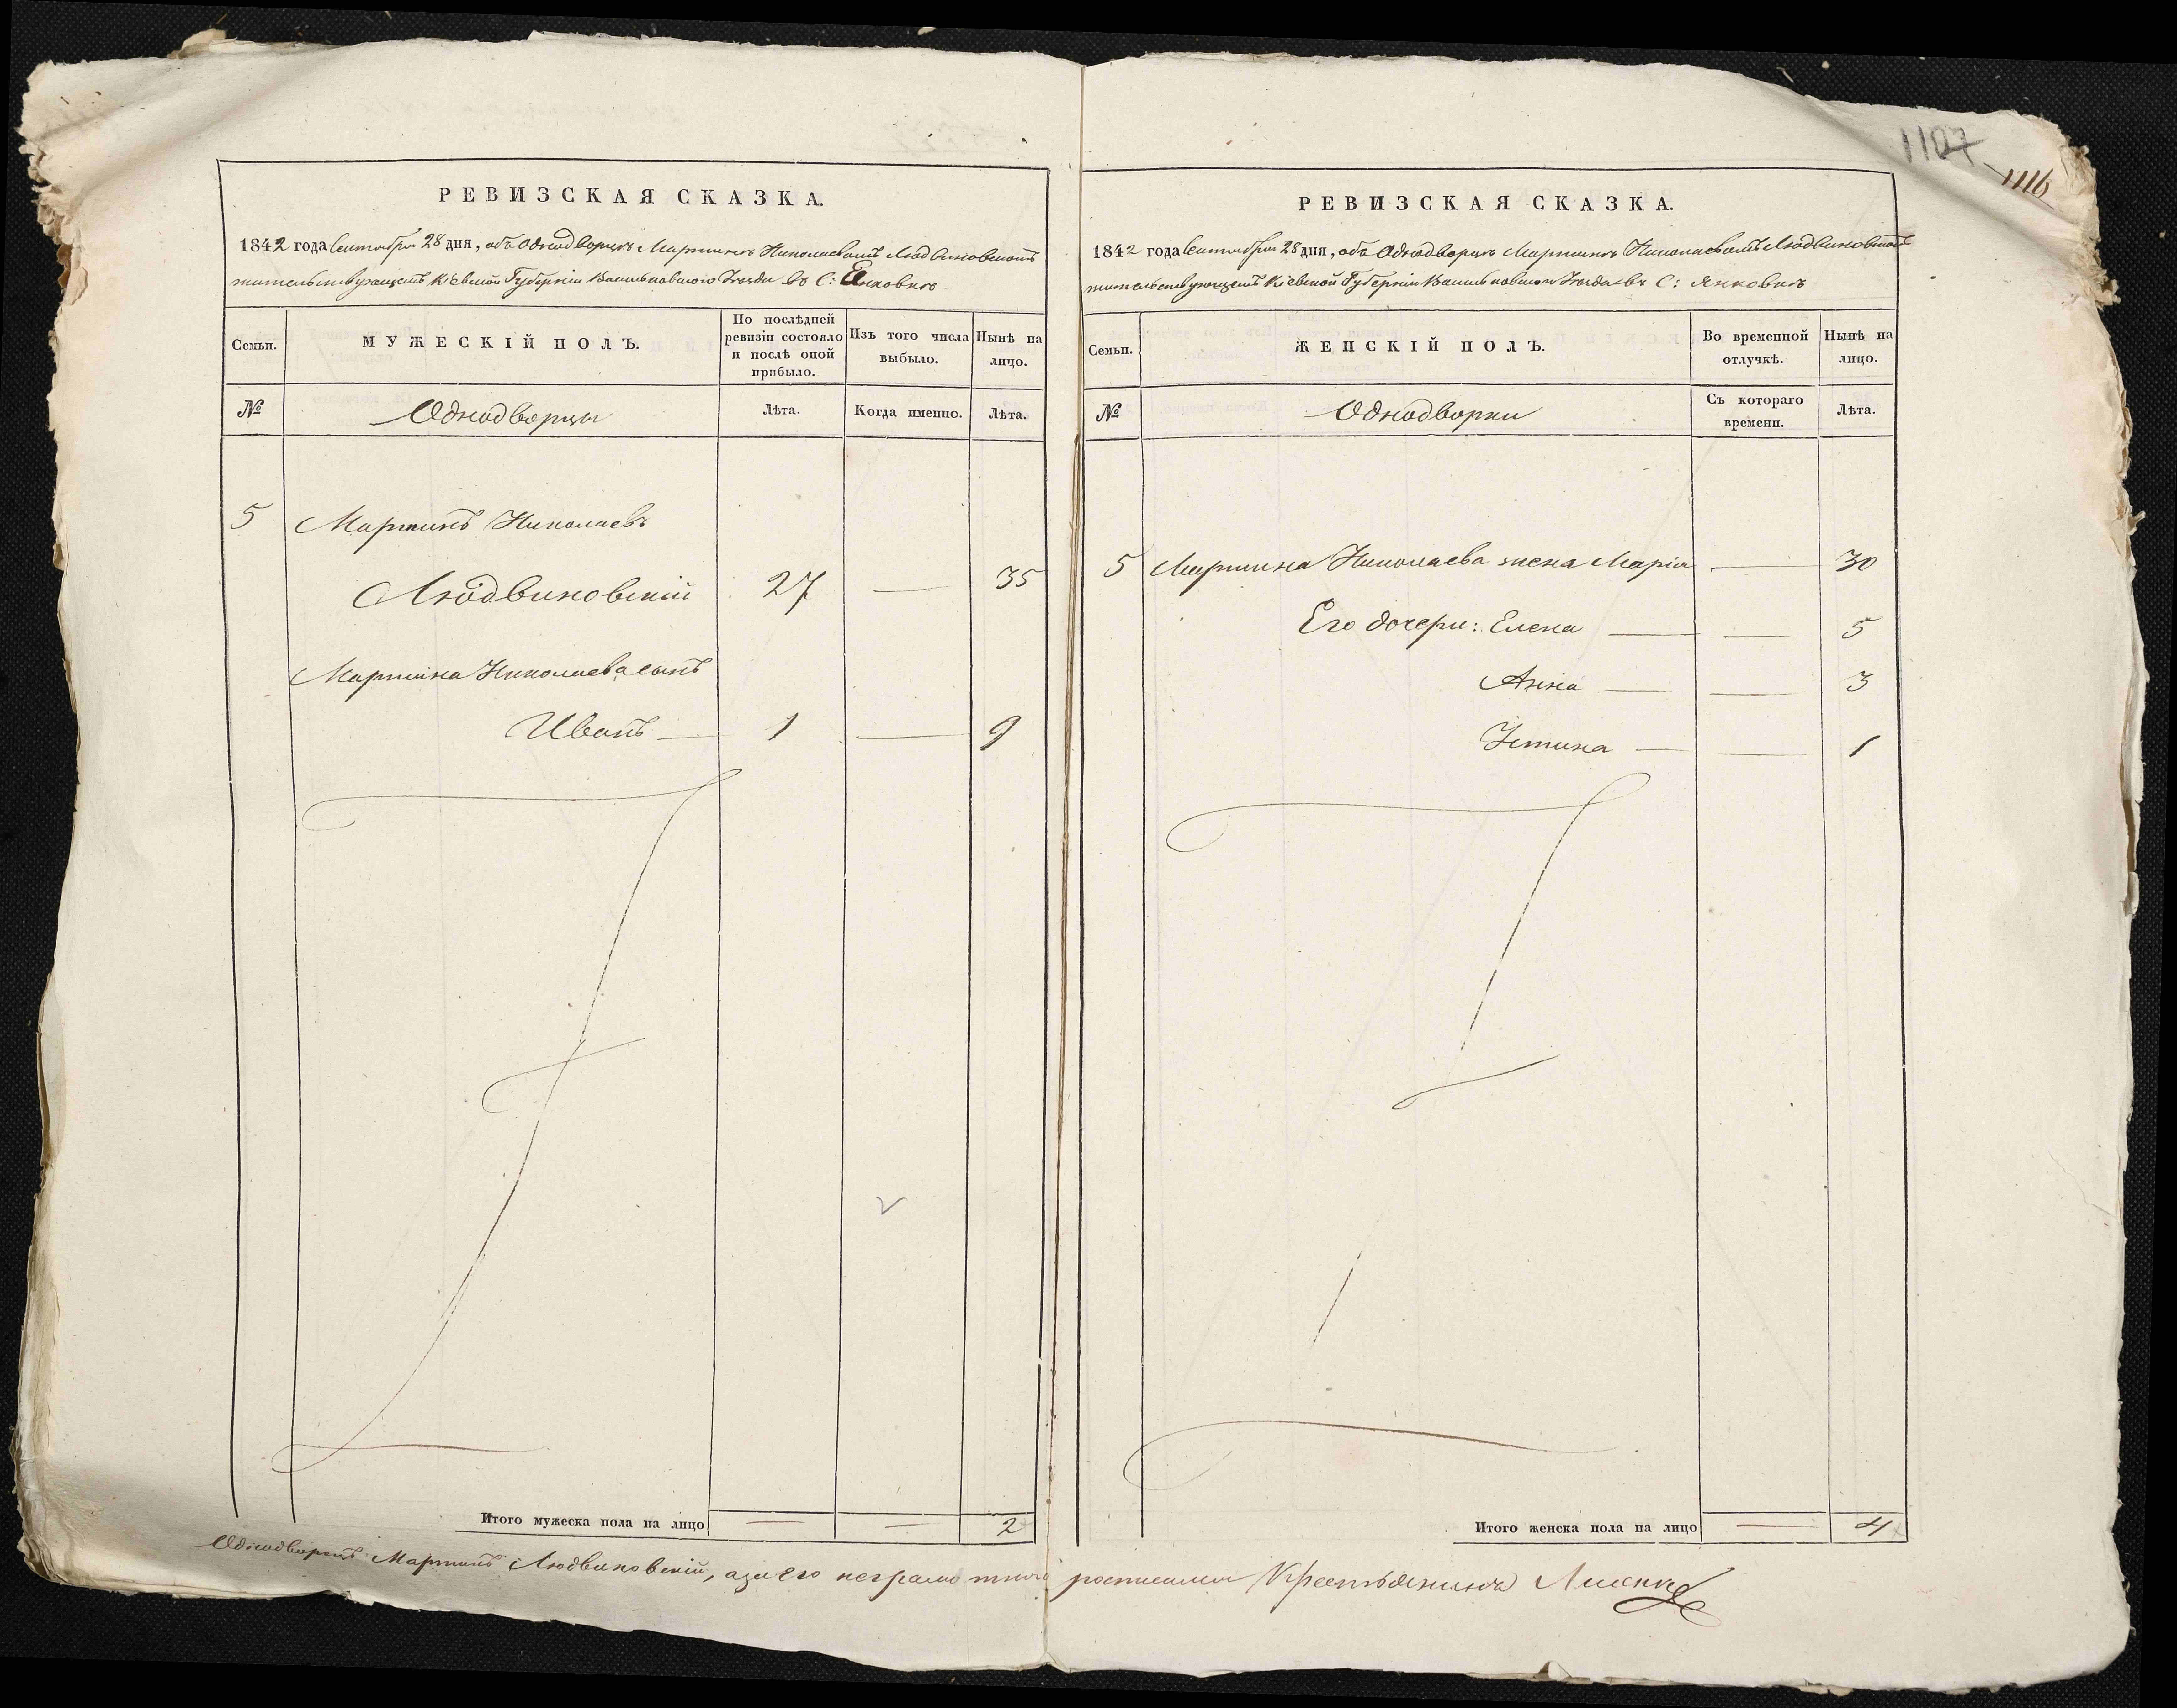 1107
1116
РЕВИЗСКАЯ СКАЗКА.
1842 года Сентября 28 дня, объ Однодворцѣ Мартинѣ Николаевомъ Людвиковскомъ
жительствующемъ Кіевской Губерніи Васильковского Уезда въ С: Янковкѣ
Семьи.
МУЖЕСКІЙ ПОЛЪ.
По послѣдней ревизіи состояло и послѣ оной прибыло.
Изъ того числа выбыло.
Нынѣ на лицо.
№
Однодворцы
Лѣта.
Когда именно.
Лѣта.
5 Мартинъ Николаевъ
Людвиковскій 27 — 35
Мартина Николаева сынъ
Иванъ — 1 — 9
Итого мужеска пола на лицо — — 2
РЕВИЗСКАЯ СКАЗКА.
1842 года Сентября 28 дня, объ Однодворцѣ Мартинѣ Николаевомъ Людвиковскомъ
жительствующемъ Кіевской Губерніи Васильковского Уезда въ С: Янковкѣ
Семьи.
ЖЕНСКІЙ ПОЛЪ.
Во временной отлучкѣ.
Нынѣ на лицо.
№
Однодворки
Съ котораго времени.
Лѣта.
5 Мартина Николаева жена Марія — 30
Его дочери: Елена — — 5
Анна — — 3
Устина — — 1
Итого женска пола на лицо — 4
Однодворецъ Мартинъ Людвиковскій, а за его неграмотного росписался Крестьянинъ